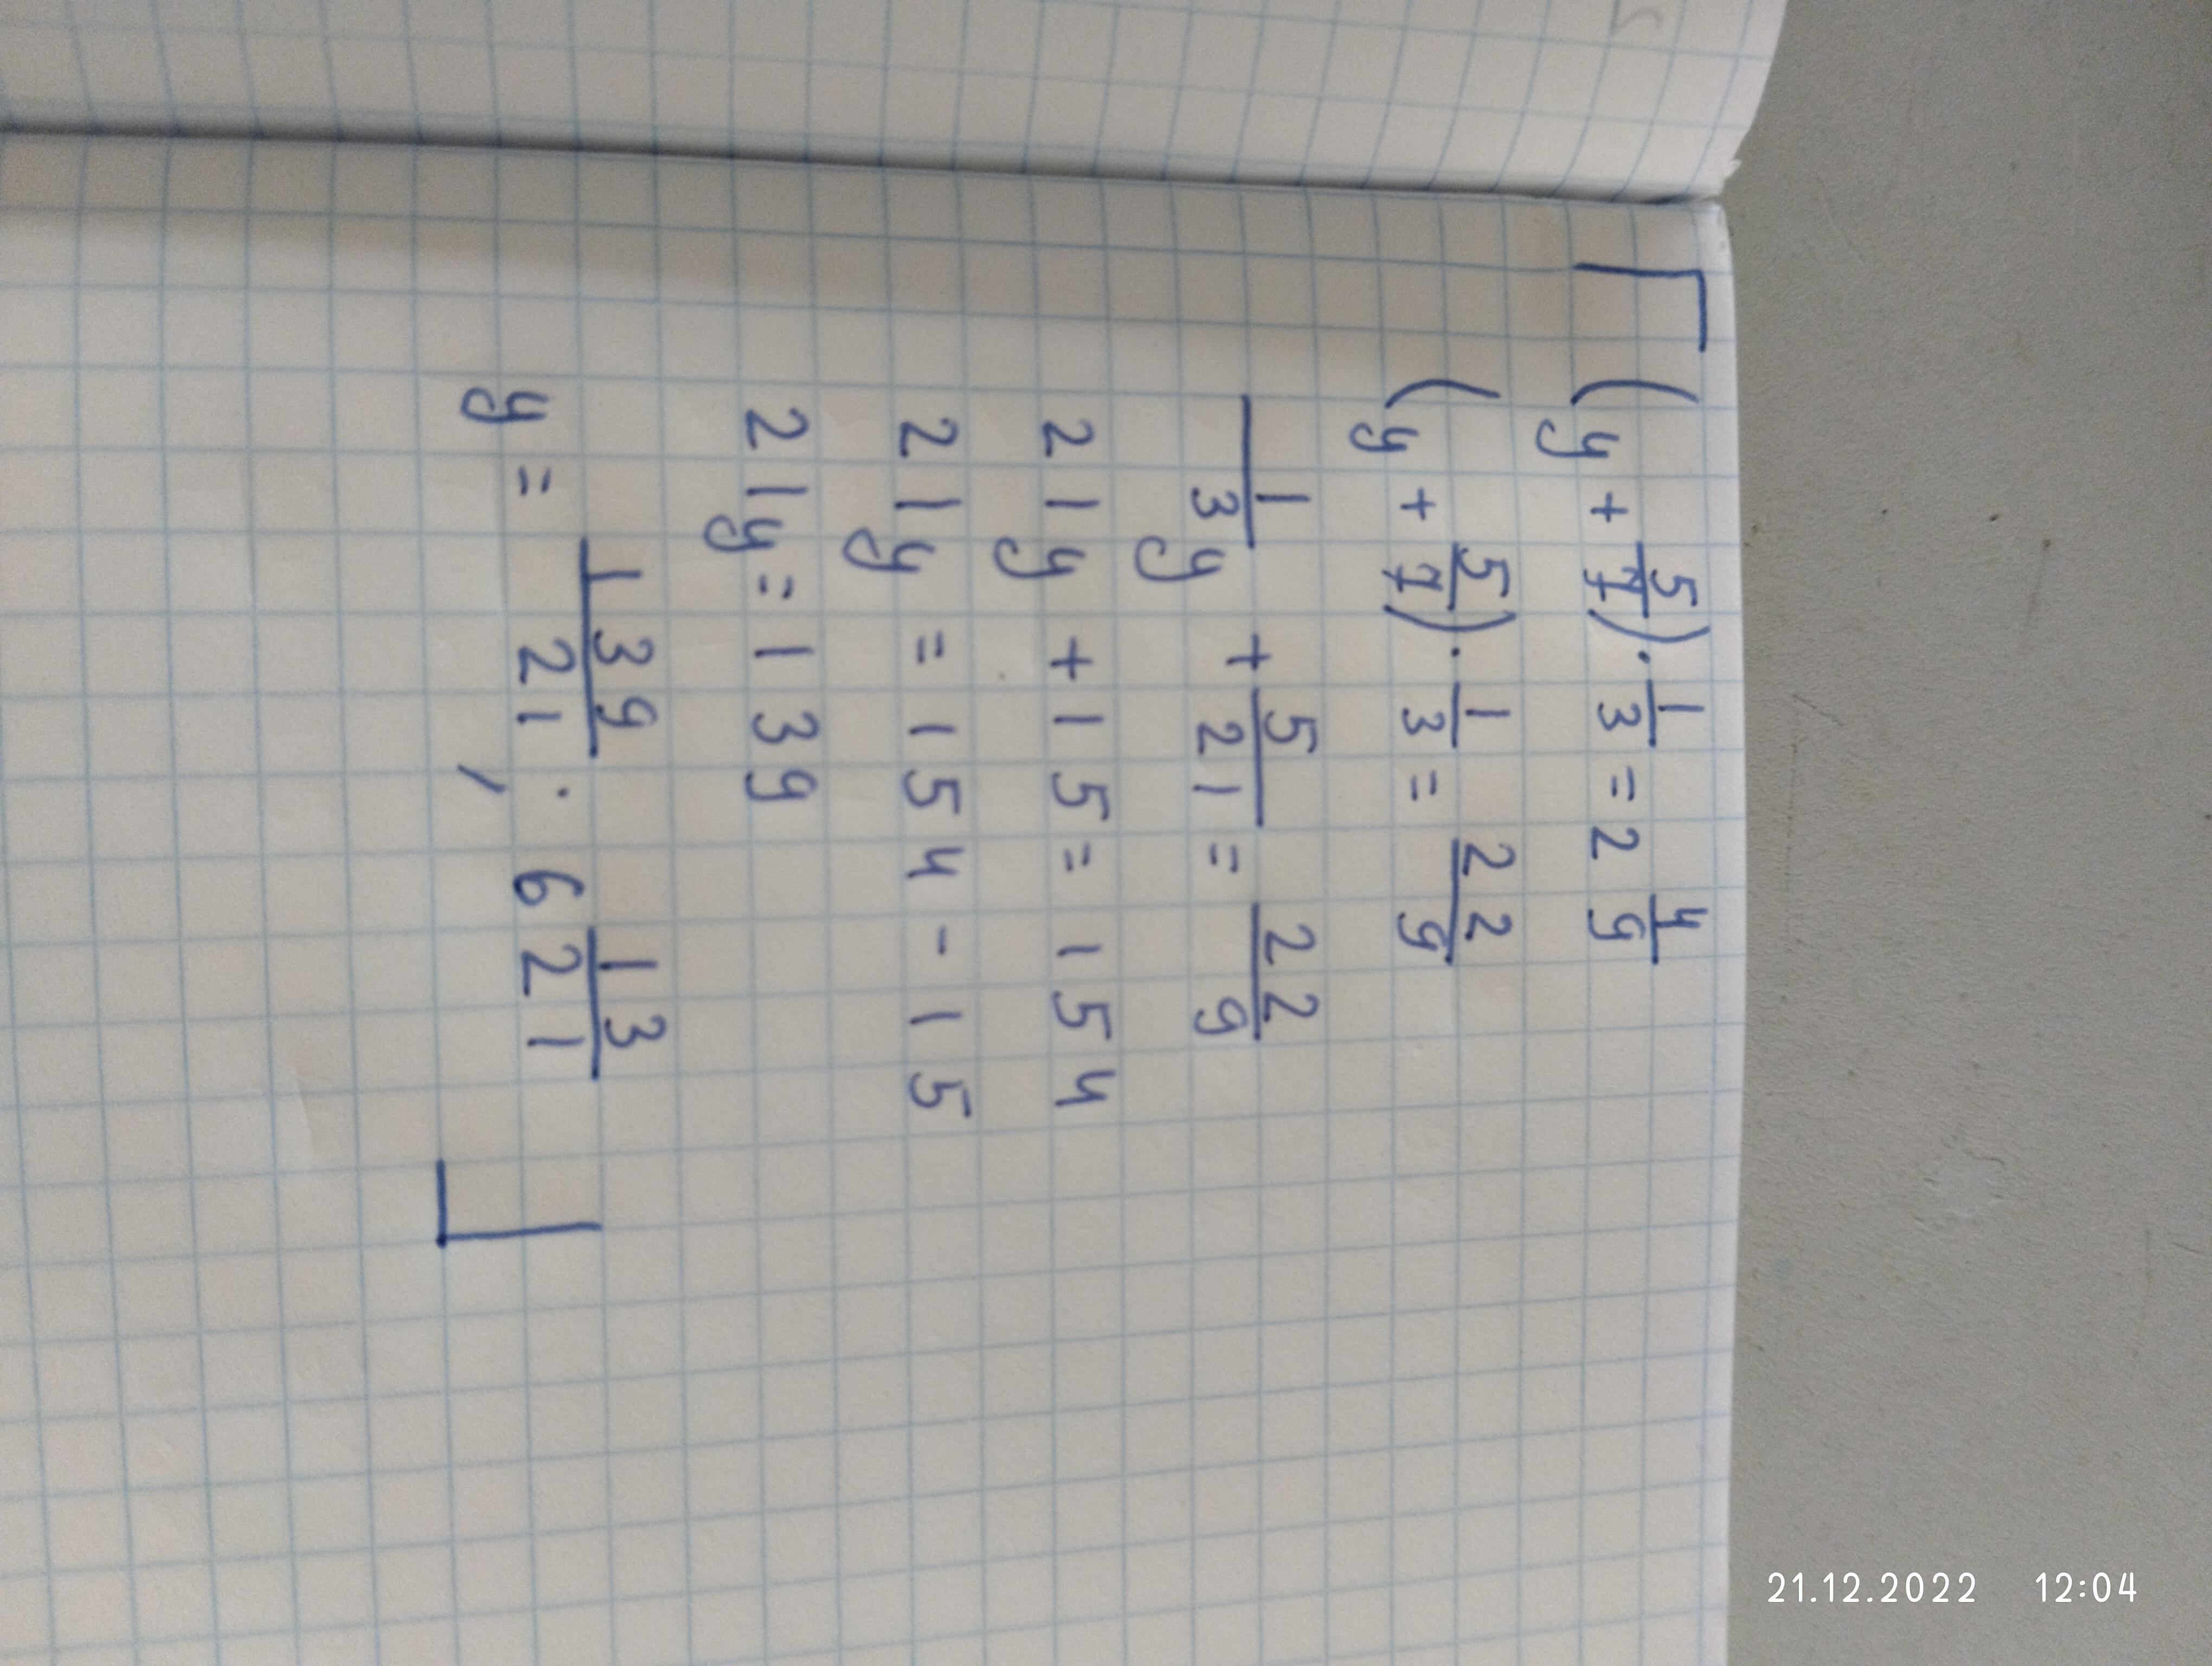 (y + 5/7) · 1/3 = 2 4/9
(y + 5/7) · 1/3 = 22/9
1/3 y + 5/21 = 22/9
21y + 15 = 154
21y = 154 - 15
21y = 139
y = 139/21 ; 6 13/21
21.12.2022 12:04